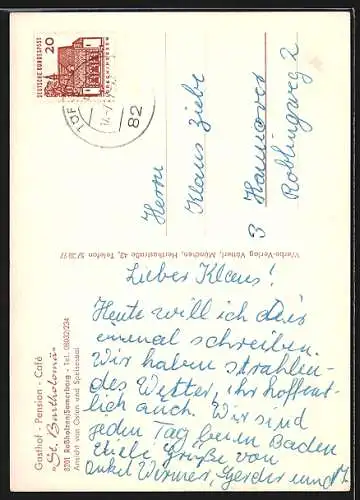 DEUTSCHE BUNDESPOST
20
82
Herrn
Klaus Ziebe
3 Hannover
Röblingweg 2
Werbe-Verlag Vötterl, München, Herthastraße 42, Telefon
Gasthof - Pension - Café
"St. Bartholomä"
8201 Roßholzen/Samerberg - Tel. 08032/234
Ansicht von Osten und Speisesaal
Lieber Klaus!
Heute will ich Dir
einmal schreiben.
Wir haben strahlen-
des Wetter, ihr hoffent-
lich auch. Wir sind
jeden Tag beim Baden
Viele Grüße von
Onkel Werner, Gerda und